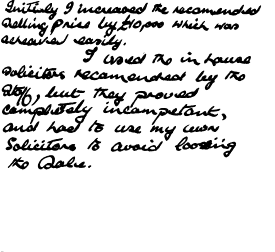 Initially I increased the recomended
selling price by £10,000 which was
acheived easily.
I used the in house
solicitors recomended by the
but they proved
completely incompetant,
and had to use my own
Solicitors to avoid loosing
the Sale.